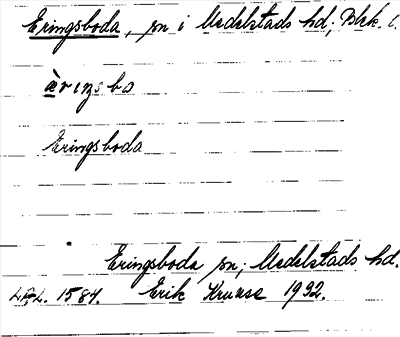 Eringsboda, sn i Medelstads hd; Blek. l.
ärıŋsbo
Eringsboda
Eringsboda sn; Medelstads hd.
LAL. 1584. Erik Kruuse 1932.